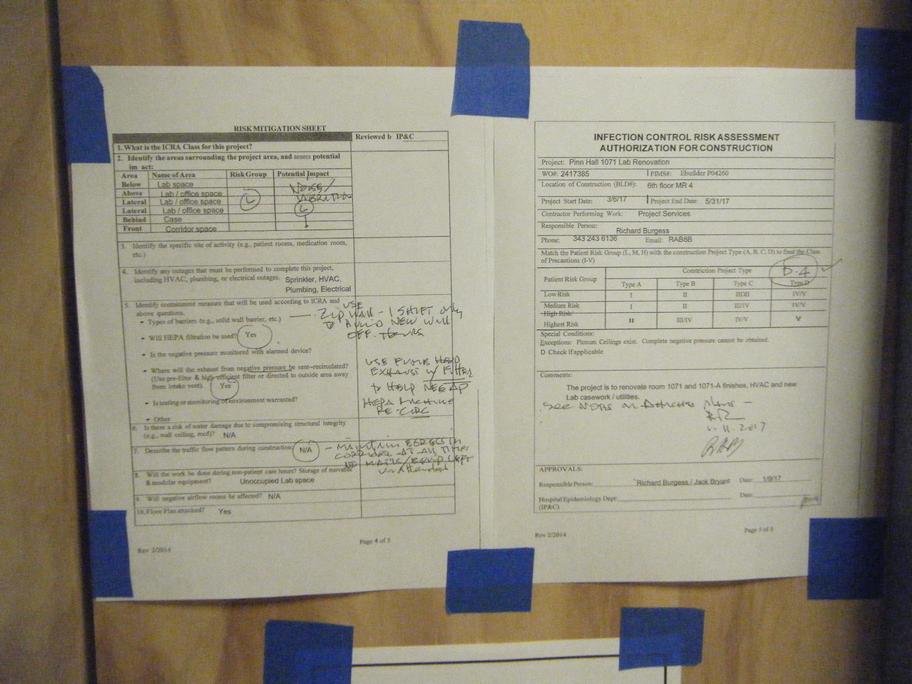 RISK MITIGATION SHEET
Reviewed b IP&C
1. What is the ICRA Class for this project?
2. Identify the areas surrounding the project area, and assess potential
im act:
Area Name of Area Risk Group Potential Impact
Below Lab space NOISE/
Above Lab / office space VIBRATION
Lateral Lab / office space L
Lateral Lab / office space L
Behind Case
Front Corridor space
3. Identify the specific site of activity (e.g., patient rooms, medication room,
etc.)
4. Identify any outages that must be performed to complete this project,
including HVAC, plumbing, or electrical outages. Sprinkler, HVAC,
Plumbing, Electrical
5. Identify containment measure that will be used according to ICRA and
above questions. USE
• Types of barriers (e.g., solid wall barrier, etc.) — ZIP WALL - 1 SHIFT ONLY
TO BUILD NEW WALL
• Will HEPA filtration be used? Yes
• Is the negative pressure monitored with alarmed device?
• Where will the exhaust from negative pressure be sent-recirculated?
(Use pre-filter & high efficient filter or directed to outside area away
from intake vent). Yes
USE FUME HOOD
EXHAUST W/ FILTER
TO HELP NEG AP
HEPA MACHINE
RE-CIRC
• Is testing or monitoring of environment warranted?
• Other
6. Is there a risk of water damage due to compromising structural integrity
(e.g., wall ceiling, roof)? N/A
7. Describe the traffic flow pattern during construction: N/A - MAINTAIN EGRESS IN
CORRIDOR AT ALL TIMES
NO MATLS/EQUIP LEFT
unattended
8. Will the work be done during non-patient case hours? Storage of movable
& modular equipment? Unoccupied Lab space
9. Will negative airflow rooms be affected? N/A
10. Floor Plan attached? Yes
Rev 2/2014 Page 4 of 5
INFECTION CONTROL RISK ASSESSMENT
AUTHORIZATION FOR CONSTRUCTION
Project: Pinn Hall 1071 Lab Renovation
WO#: 2417385 PIMS#: Ebuilder P04260
Location of Construction (BLD#): 6th floor MR 4
Project Start Date: 3/6/17 Project End Date: 5/31/17
Contractor Performing Work: Project Services
Responsible Person: Richard Burgess
Phone: 343 243 6136 Email: RAB8B
Match the Patient Risk Group (L, M, H) with the construction Project Type (A, B, C, D) to find the Class
of Precautions (I-V)
D-4
Patient Risk Group Constriction Project Type
Type A Type B Type C Type D
Low Risk I II II/III IV/V
Medium Risk I II III/IV IV/V
High Risk
Highest Risk II III/IV IV/V V
Special Conditions:
Exceptions: Plenum Ceilings exist. Complete negative pressure cannot be obtained.
D Check if applicable
Comments:
The project is to renovate room 1071 and 1071-A finishes, HVAC and new
Lab casework / utilities.
See NOTES on Attached Plans -
APPROVALS:
Responsible Person: Richard Burgess / Jack Bryant Date: 1/9/17
Hospital Epidemiology Dept: Date:
(IP&C)
Rev 2/2014 Page 5 of 5